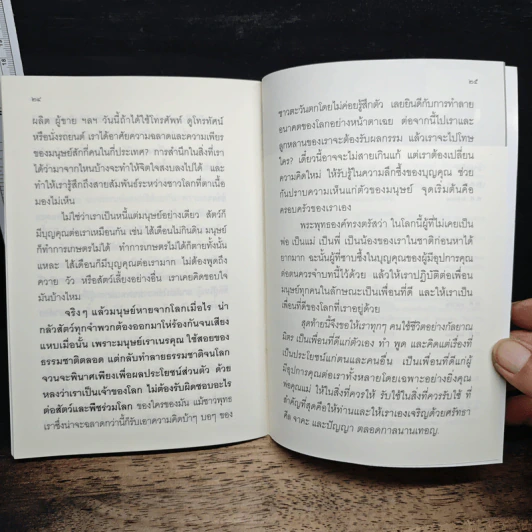 ๒๔
ผลิต ผู้ขาย ฯลฯ วันนี้ถ้าได้ใช้โทรศัพท์ ดูโทรทัศน์
หรือนั่งรถยนต์ เราได้อาศัยความฉลาดและความเพียร
ของมนุษย์สักกี่คนในกี่ประเทศ? การสำนึกในสิ่งที่เรา
ได้ว่ามาจากไหนบ้างจะทำให้จิตใจสงบลงไปได้ และ
ทำให้เรารู้สึกถึงสายสัมพันธ์ระหว่างชาวโลกที่ตาเนื้อ
มองไม่เห็น
ไม่ใช่ว่าเราเป็นหนี้แต่มนุษย์อย่างเดียว สัตว์ก็
มีบุญคุณต่อเราเหมือนกัน เช่น ไส้เดือนไม่กินดิน มนุษย์
ก็ทำการเกษตรไม่ได้ ทำการเกษตรไม่ได้ก็ตายทั้งนั้น
แหละ ไส้เดือนก็มีบุญคุณต่อเรามาก ไม่ต้องพูดถึง
ควาย วัว หรือสัตว์เลี้ยงอย่างอื่น เราเคยคิดขอบใจ
มันบ้างไหม
จริงๆ แล้วมนุษย์หายจากโลกเมื่อไร น่า
กลัวสัตว์ทุกจำพวกต้องออกมาไห่ร้องกันจนเสียง
แหบเมื่อนั้น เพราะมนุษย์เราเนรคุณ ใช้สอยของ
ธรรมชาติตลอด แต่กลับทำลายธรรมชาติจนโลก
จวนจะพินาศเพียงเพื่อผลประโยชน์ส่วนตัว ด้วย
หลงว่าเราเป็นเจ้าของโลก ไม่ต้องรับผิดชอบอะไร
ต่อสัตว์และพืชร่วมโลก ของใครของมัน แม้ชาวพุทธ
เราซึ่งน่าจะฉลาดกว่านี้ก็รับเอาความคิดบ้าๆ บอๆ ของ
๒๕
ชาวตะวันตกโดยไม่ค่อยรู้สึกตัว เลยยินดีกับการทำลาย
อนาคตของโลกอย่างหน้าตาเฉย ต่อจากนี้ไปเราและ
ลูกหลานของเราจะต้องรับผลกรรม แล้วเราจะไปโทษ
ใคร? เดี๋ยวนี้อาจจะไม่สายเกินแก้ แต่เราต้องเปลี่ยน
ความคิดใหม่ ให้รับรู้ในความลึกซึ้งของบุญคุณ ช่วย
กันปราบความเห็นแก่ตัวของมนุษย์ จุดเริ่มต้นคือ
ครอบครัวของเราเอง
พระพุทธองค์ทรงตรัสว่า ในโลกนี้ผู้ที่ไม่เคยเป็น
พ่อ เป็นแม่ เป็นพี่ เป็นน้องของเราในชาติก่อนหาได้
ยากมาก ฉะนั้นผู้ที่ซาบซึ้งในบุญคุณของผู้มีอุปการคุณ
ต่อตนควรจำบทนี้ไว้ด้วย แล้วให้เราปฏิบัติต่อเพื่อน
มนุษย์ทุกคนในลักษณะเป็นเพื่อนที่ดี และให้เราเป็น
เพื่อนที่ดีของโลกที่เราอยู่ด้วย
สุดท้ายนี้จึงขอให้เราทุกๆ คนใช้ชีวิตอย่างกัลยาณ
มิตร เป็นเพื่อนที่ดีแก่ตัวเอง ทำ พูด และคิดแต่เรื่องที่
เป็นประโยชน์แก่ตนและคนอื่น เป็นเพื่อนที่ดีแก่ผู้
มีอุปการคุณต่อเราทั้งหลายโดยเฉพาะอย่างยิ่งคุณ
พ่อคุณแม่ ให้ในสิ่งที่ควรให้ รับใช้ในสิ่งที่ควรรับใช้ ที่
สำคัญที่สุดคือให้ท่านและให้เราเองเจริญด้วยศรัทธา
ศีล จาคะ และปัญญา ตลอดกาลนานเทอญ.